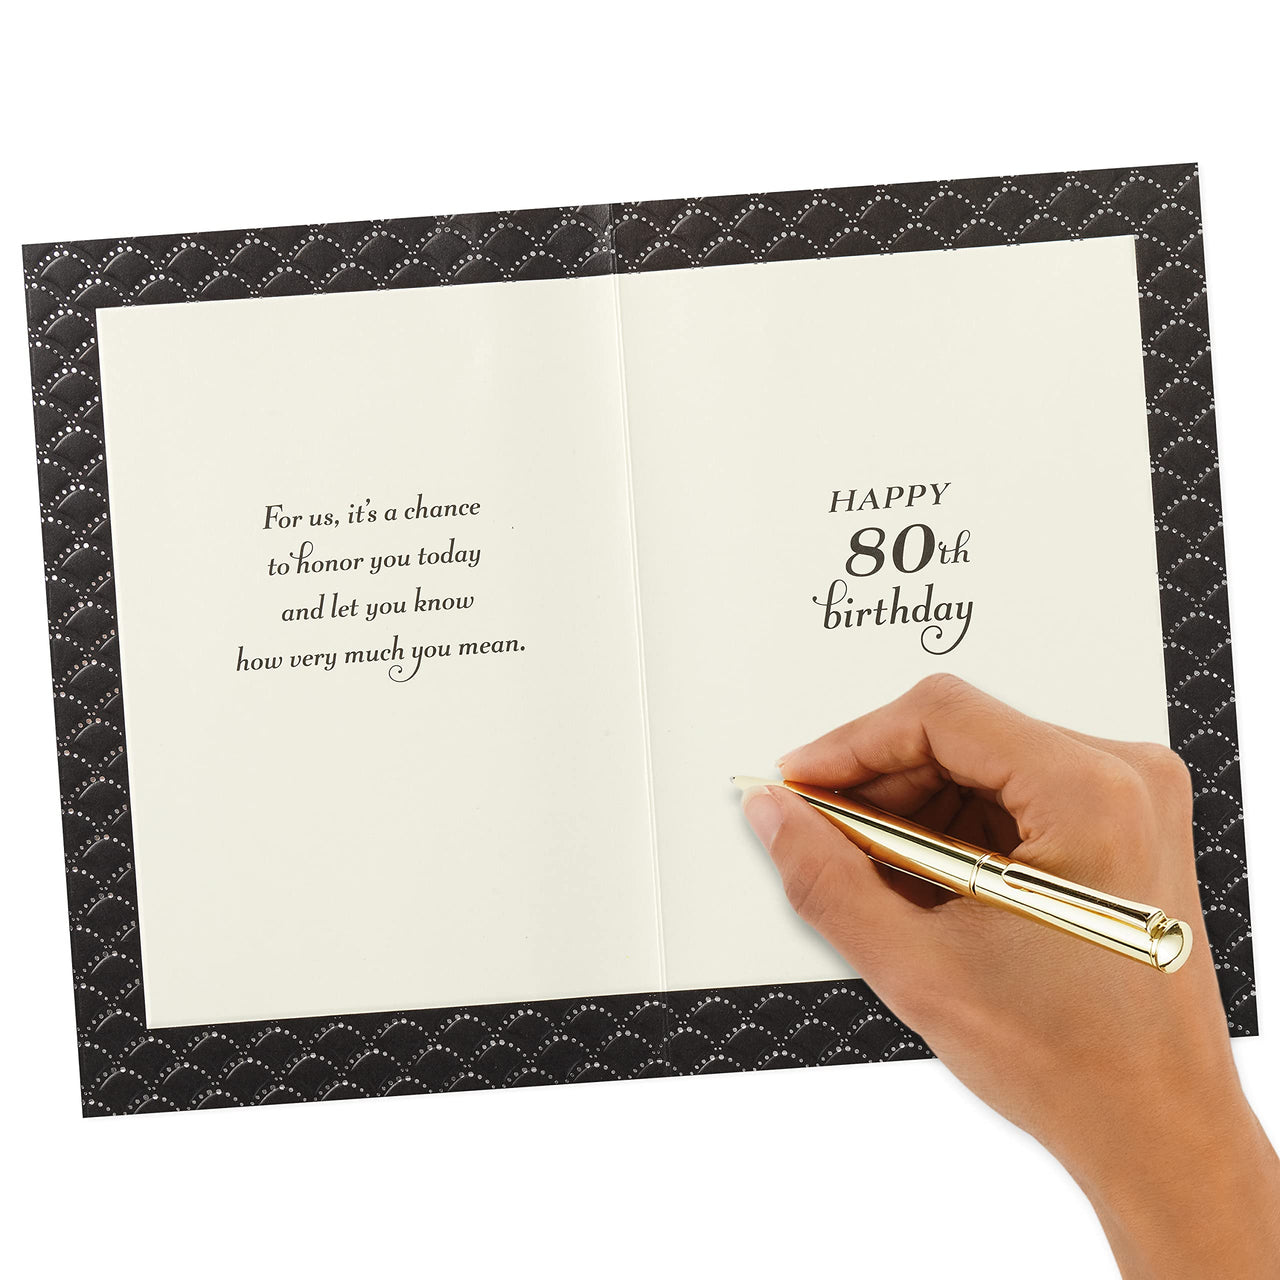 For us, it's a chance
to honor you today
and let you know
how very much you mean.
HAPPY
80th
birthday